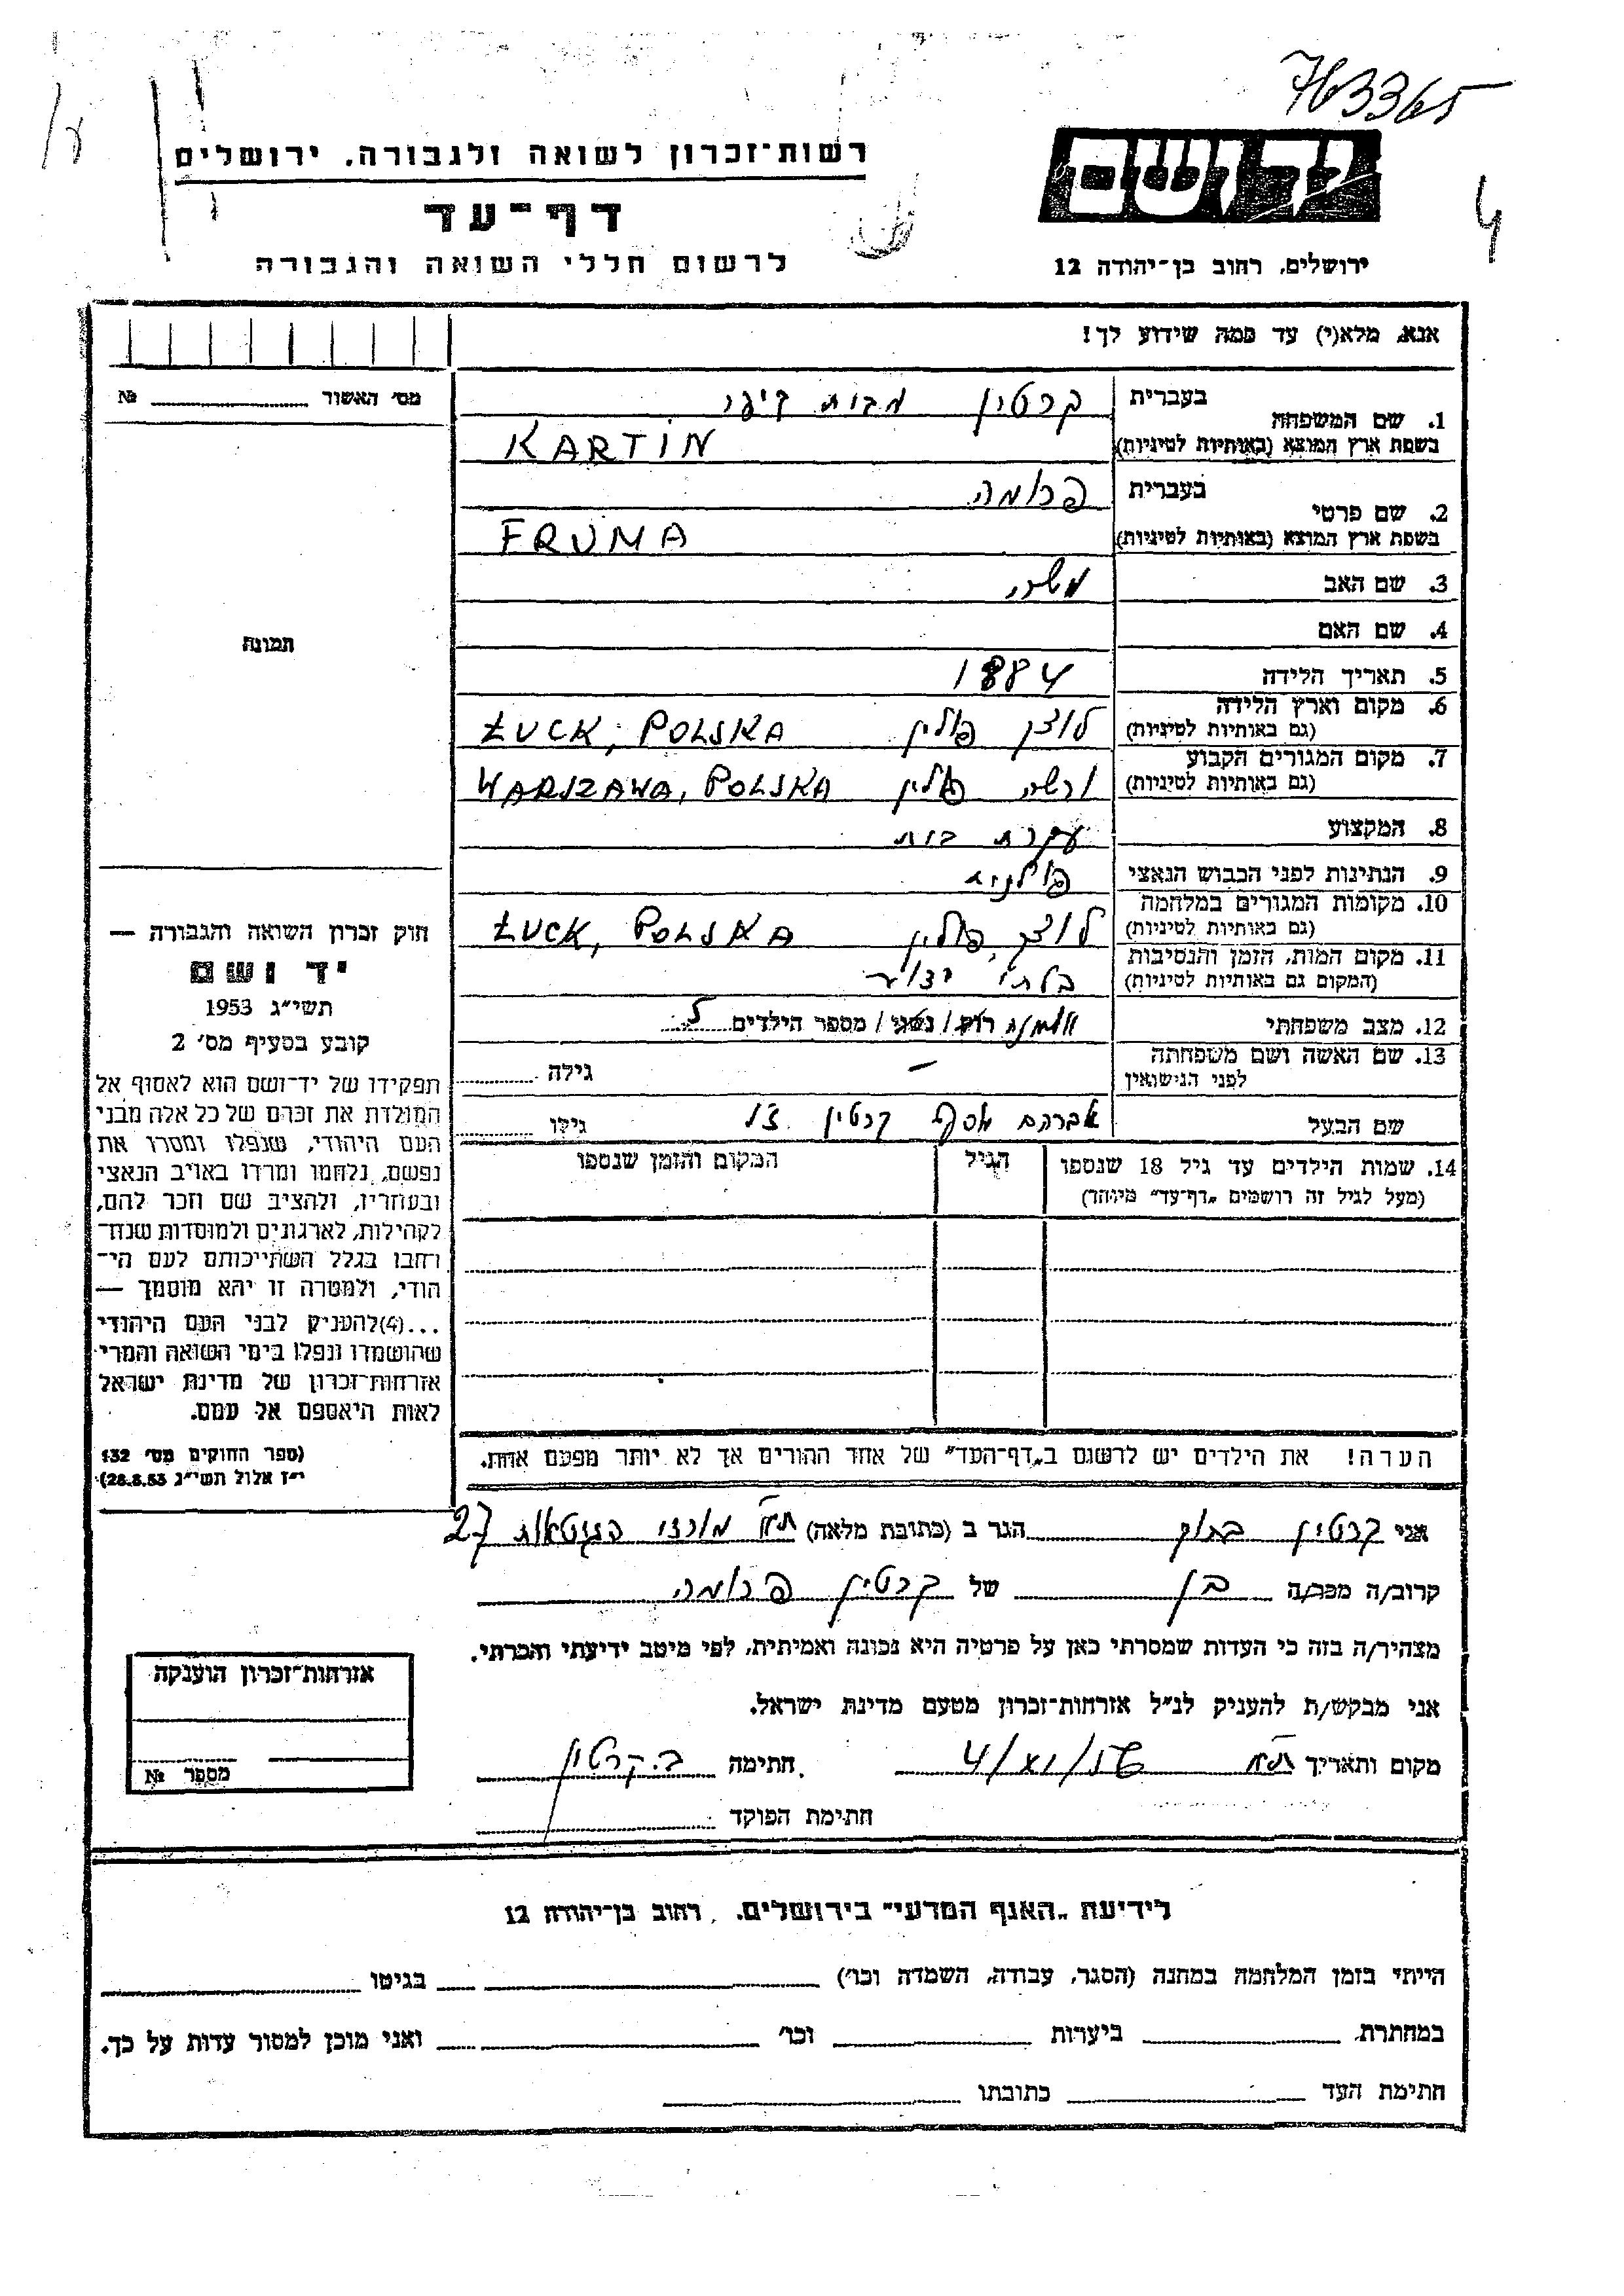 763365
רשות־זכרון לשואה ולגבורה. ירושלים
יד ושם
דף־עד
לרשום חללי השואה והגבורה
ירושלים, רחוב בן־יהודה 12
4
אנא, מלא(י) עד כמה שידוע לך!
מס׳ האשור № 
1. שם המשפחה
בעברית קרטין מבית
בשפת ארץ המוצא (באותיות לטיניות) KARTIN
2. שם פרטי
בעברית פרומה
בשפת ארץ המוצא (באותיות לטיניות) FRUMA
3. שם האב משה
תמונה
4. שם האם
5. תאריך הלידה 1884
6. מקום וארץ הלידה (גם באותיות לטיניות) לוצק פולין ŁUCK, POLSKA
7. מקום המגורים הקבוע (גם באותיות לטיניות) ורשה פולין WARSZAWA, POLSKA
8. המקצוע עקרת בית
9. הנתינות לפני הכבוש הנאצי פולנית
10. מקומות המגורים במלחמה (גם באותיות לטיניות) לוצק, פולין ŁUCK, POLSKA
11. מקום המות, הזמן והנסיבות (המקום גם באותיות לטיניות) בלתי ידוע
12. מצב משפחתי אלמנה רוק / נשוי / מספר הילדים 5
13. שם האשה ושם משפחתה לפני הנישואין – גילה
שם הבעל אברהם יוסף קרטין ז"ל גילו
14. שמות הילדים עד גיל 18 שנספו
(מעל לגיל זה רושמים „דף־עד״ מיוחד)
הגיל
המקום והזמן שנספו
חוק זכרון השואה והגבורה —
יד ושם
תשי״ג 1953
קובע בסעיף מס׳ 2
תפקידו של יד־ושם הוא לאסוף אל
המולדת את זכרם של כל אלה מבני
העם היהודי, שנפלו ומסרו את
נפשם, נלחמו ומרדו באויב הנאצי
ובעוזריו, ולהציב שם וזכר להם,
לקהילות, לארגונים ולמוסדות שנח־
רחבו בגלל השתייכותם לעם הי־
הודי, ולמטרה זו יהא מוסמך —
...(4)להעניק לבני העם היהודי
שהושמדו ונפלו בימי השואה והמרי
אזרחות־זכרון של מדינת ישראל
לאות היאספם אל עמם.
(ספר החוקים מס׳ 132
י״ז אלול תשי״ג 28.8.53)
הערה! את הילדים יש לרשום ב„דף־העד״ של אחד ההורים אך לא יותר מפעם אחת.
אני קרטין ברוך הגר ב (כתובת מלאה) ת"א מורדי הגיטאות 27
קרוב/ה מכר/ה בן של קרטין פרומה
מצהיר/ה בזה כי העדות שמסרתי כאן על פרטיה היא נכונה ואמיתית, לפי מיטב ידיעתי והכרתי.
אני מבקש/ת להעניק לנ״ל אזרחות־זכרון מטעם מדינת ישראל.
מקום ותאריך ת"א 4/XI/56 חתימה ב. קרטין
חתימת הפוקד
אזרחות־זכרון הוענקה
מספר №
לידיעת „האגף המדעי״ בירושלים. רחוב בן־יהודה 12
הייתי בזמן המלחמה במחנה (הסגר, עבודה, השמדה וכו׳) בגיטו
במחתרת ביערות וכו׳ ואני מוכן למסור עדות על כך.
חתימת העד כתובתו